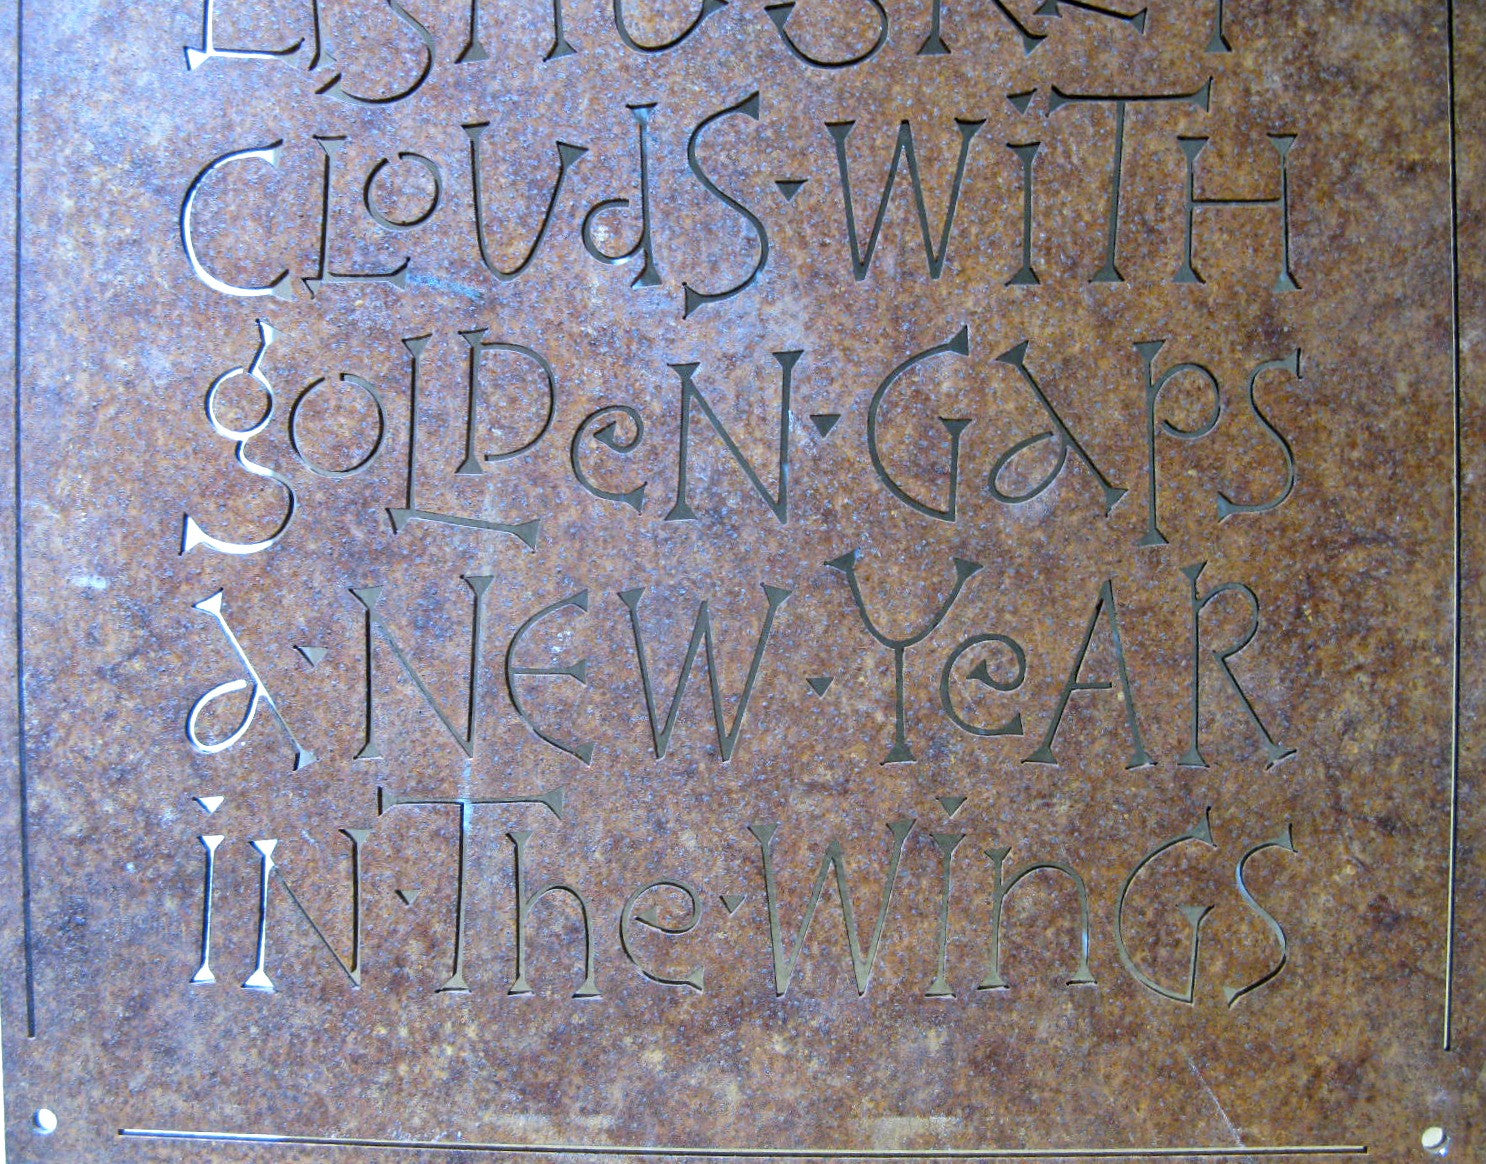 CLOUdS WiTH
gOLDeN GaPS
a NEW YeAR
iN The WinGS